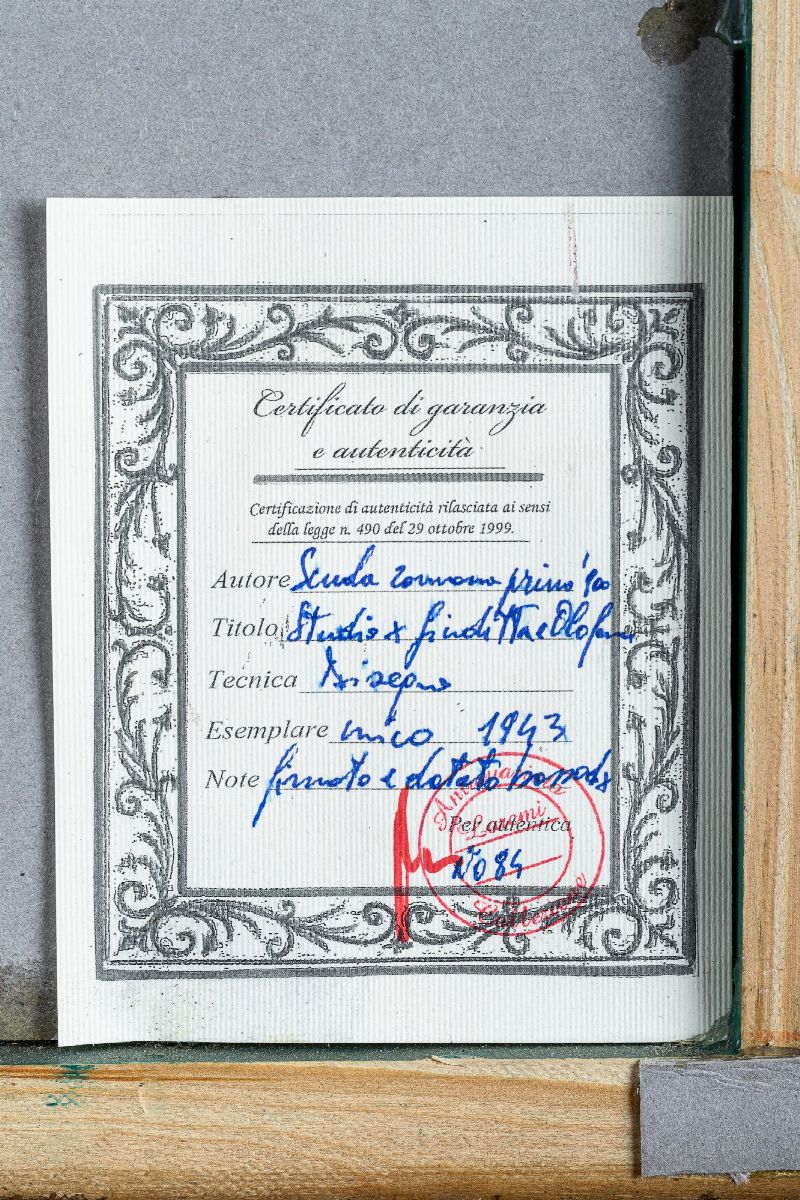 Certificato di garanzia
e autenticità
Certificazione di autenticità rilasciata ai sensi
della legge n. 490 del 29 ottobre 1999.
Autore Scuola romana primo '900
Titolo Studio x Giuditta e Oloferne
Tecnica Disegno
Esemplare unico 1943
Note firmato e datato basso dx
Per autentica
N° 84
Antiquariato
Laremi
Collezione